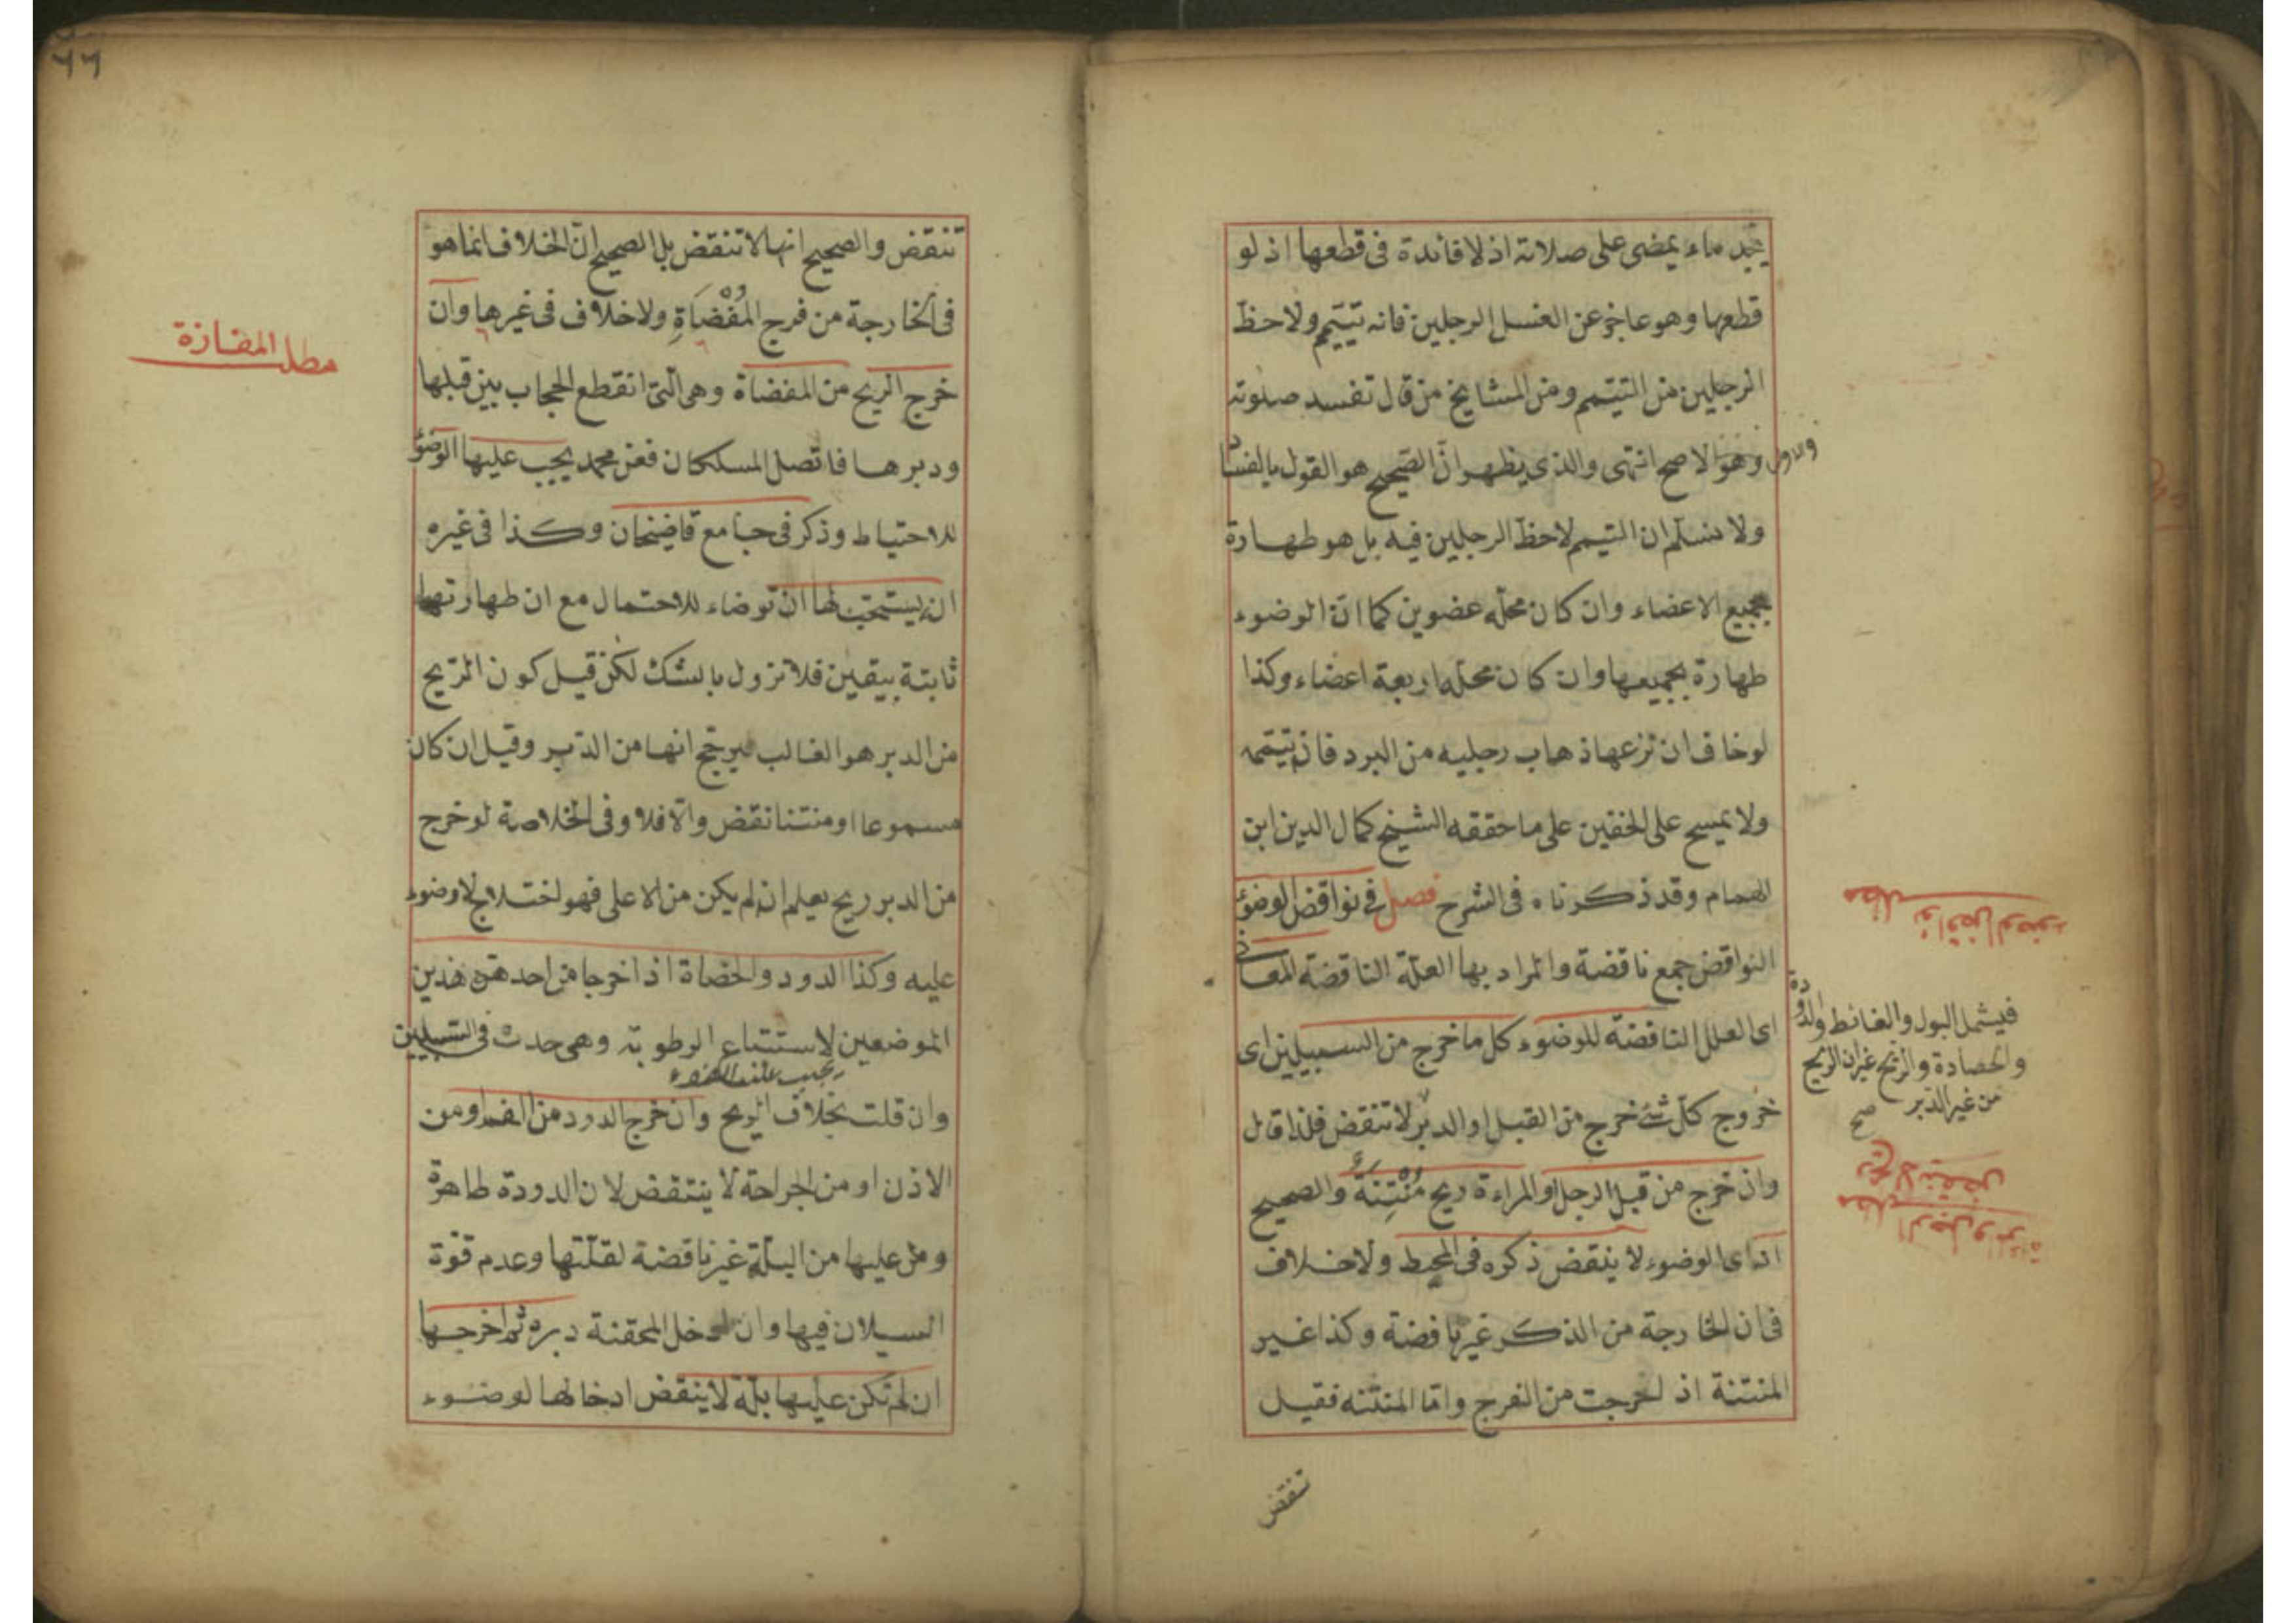 يجد ماء يمضى على صلاته اذ لا فائدة فى قطعها اذ لو
قطعها وهو عاجز عن الغسل الرجلين فانه تيتيم ولا حظّ
الرجلين من التيتمم ومن المشايخ من قال تفسد صلوته
وهو الاصح انتهى والذى يظهر انّ الصّحيح هو القول بالفساد
والاول
ولا نسلّم ان التيمم لا حظّ الرجلين فيه بل هو طهارة
بجميع الاعضاء وان كان محلّه عضوين كما انّ الوضوء
طهارة بجميعها وان كان محلها اربعة اعضاء وكذا
لو خاف ان نزعها ذهاب رجليه من البرد فانه تيتمم
ولا يمسح على الخفين على ما حققه الشيخ كمال الدين ابن
الهمام وقد ذكرناه فى الشرح فصل فى نواقض الوضوء
مطلب نواقض الوضوء
النواقض جمع ناقضة والمراد بها العلّة الناقضة المعانى
اى العلل الناقضة للوضوء كل ما خرج من السبيلين اى
فيشمل البول والغائط والدودة
والحصادة والريح غير ان الريح
من غير الدبر
صح
خروج كلّ شئ خرج من القبل او الدبر لا تنقض فلذا قال
وان خرج من قبل الرجل او المراءة ريح مُنْتِنَةٌ والصحيح
ريح لا ينقض
مطلب الرجل والمرأة
انه اى الوضوء لا ينقض ذكره فى المحيط ولا خلاف
فى ان الخارجة من الذكر غير ناقضة وكذا غير
المنتنة اذ لخرجت من الفرج وامّا المنتنه فقيل
تنقض
٦٦
تنقض والصحيح انها لا تنقض بل الصحيح انّ الخلاف انما هو
فى الخارجة من فرج المُفْضَاةِ ولا خلاف فى غيرها وان
مطلب المفازة
خرج الريح من المفضاة وهى الّتى انقطع الحجاب بين قبلها
ودبرها فاتصل المسلكان فعن محمد يجب عليها الوضوء
للاحتياط وذكر فى جامع قاضيخان وكذا فى غيره
انه يستحبّ لها ان توضاء للاحتمال مع ان طهارتها
ثابتة بيقين فلا تزول بالشك لكن قيل كون الريح
من الدبر هو الغالب فيرجّح انها من الدّبر وقيل ان كان
مسموعا او منتنا نقض والّا فلا وفى الخلاصة لو خرج
من الدبر ريح يعلم انه لم يكن من الاعلى فهو لختلاج لا وضوء
عليه وكذا الدود والحصاة اذا خرجا من احد هذين
الموضعين لاستتباع الرطوبة وهى حدث فى السّبيلين
يجب عليه الوضوء
وان قلت بخلاف الريح وان خرج الدود من الفم او من
الاذن او من الجراحة لا ينتقض لان الدودة طاهرة
وما عليها من البلّة غير ناقضة لقلّتها وعدم قوّة
السيلان فيها وان ادخل المحقنة دبره ثم اخرجها
ان لم تكن عليها بلّة لا ينقض ادخالها الوضوء